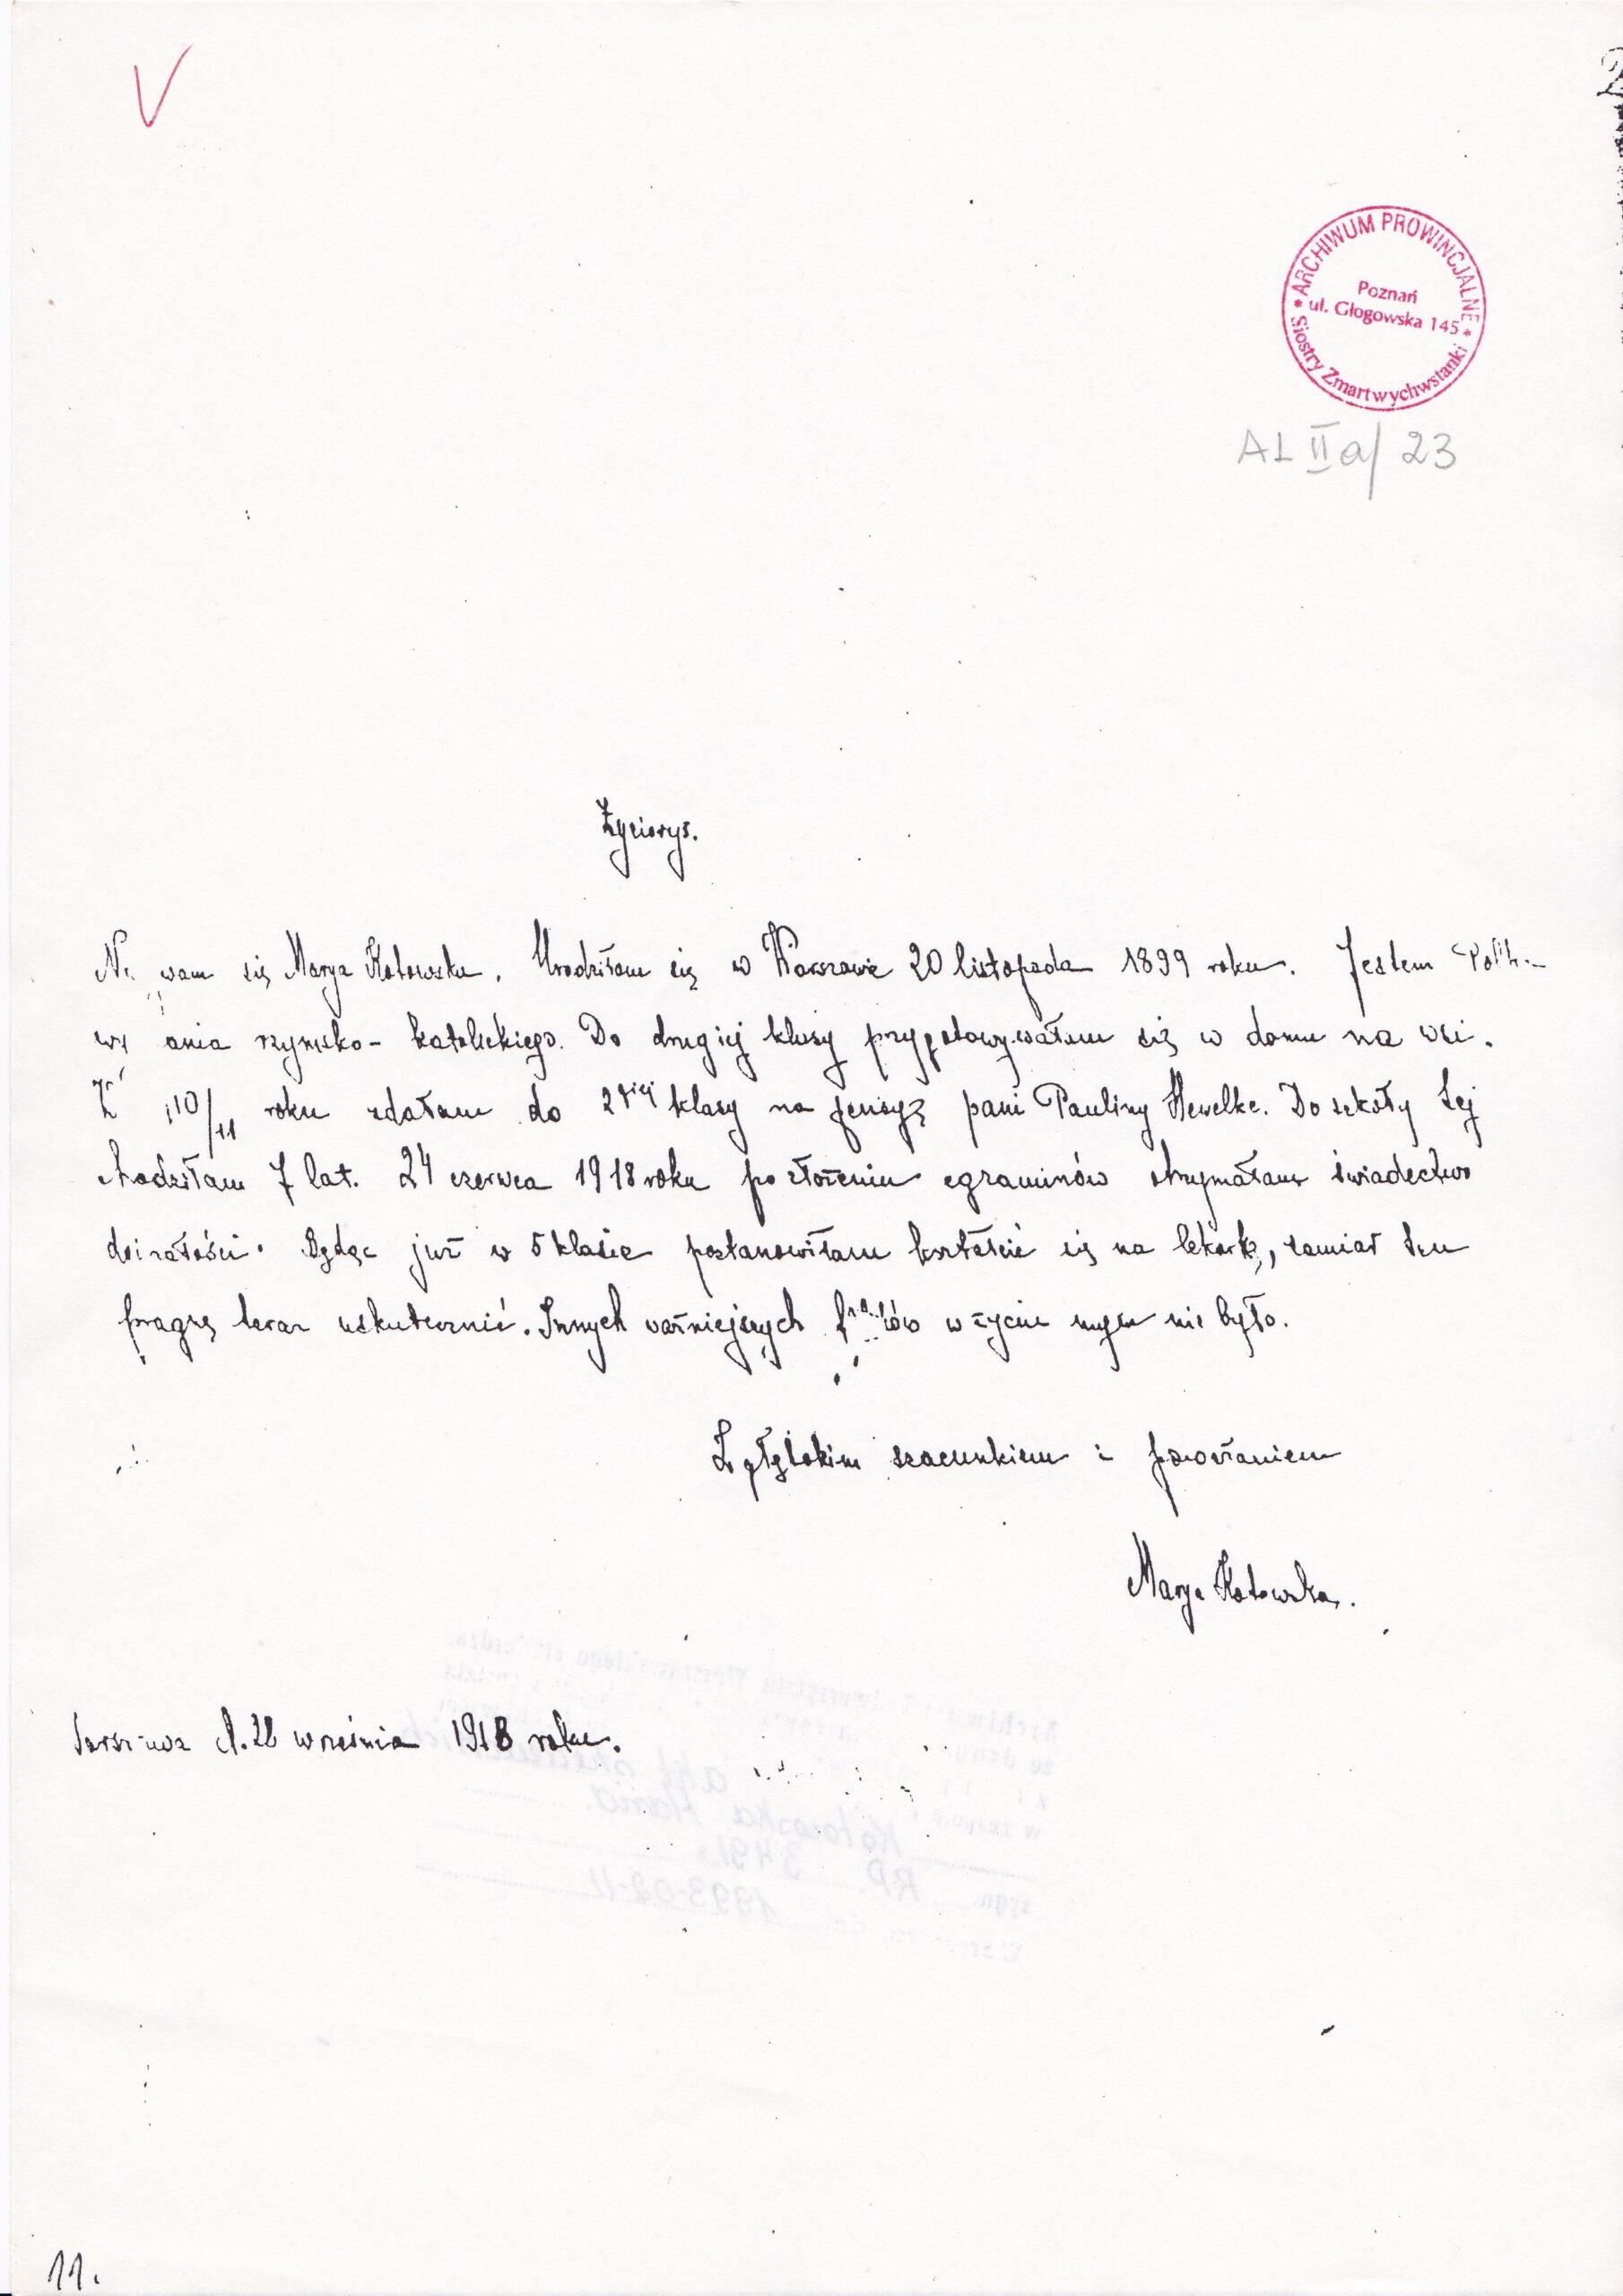 ARCHIWUM PROWINCJALNE
Poznań
ul. Głogowska 145
Siostry Zmartwychwstanki
AL IIa/23
Życiorys.
się Marya Kotowska. Urodziłam się w Warszawie 20 listopada 1899 roku. Jestem
rzymsko-katolickiego. Do drugiej klasy przygotowywałam się w domu na wsi.
10/11 roku zdałam do 2giej klasy na pensyę pani Pauliny Hewelke. Do szkoły tej
chodziłam 7 lat. 24 czerwca 1918 roku po złożeniu egzaminów otrzymałam świadectwo
dojrzałości. Będąc już w 5 klasie postanowiłam kształcić się na lekarkę, zamiar ten
pragnę teraz uskutecznić. Innych ważniejszych w życiu mym nie było.
Z głębokim szacunkiem i poważaniem
Marya Kotowska.
d. 28 września 1918 roku.
11.